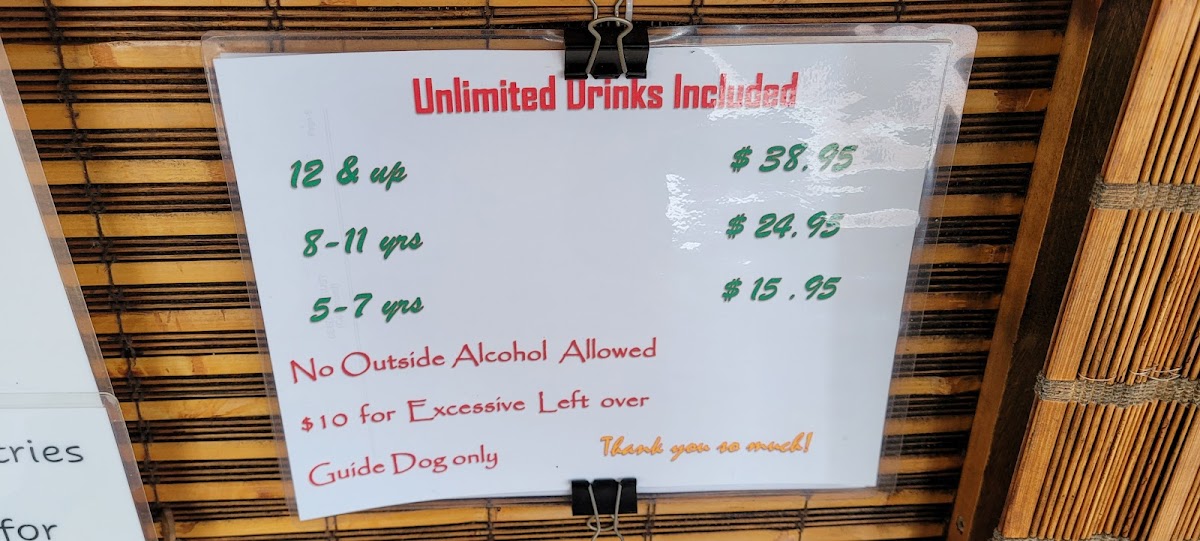 Unlimited Drinks Included
12 & up $ 38.95
8-11 yrs $ 24.95
5-7 yrs $ 15 . 95
No Outside Alcohol Allowed
$10 for Excessive Left over
Guide Dog only Thank you so much!
for